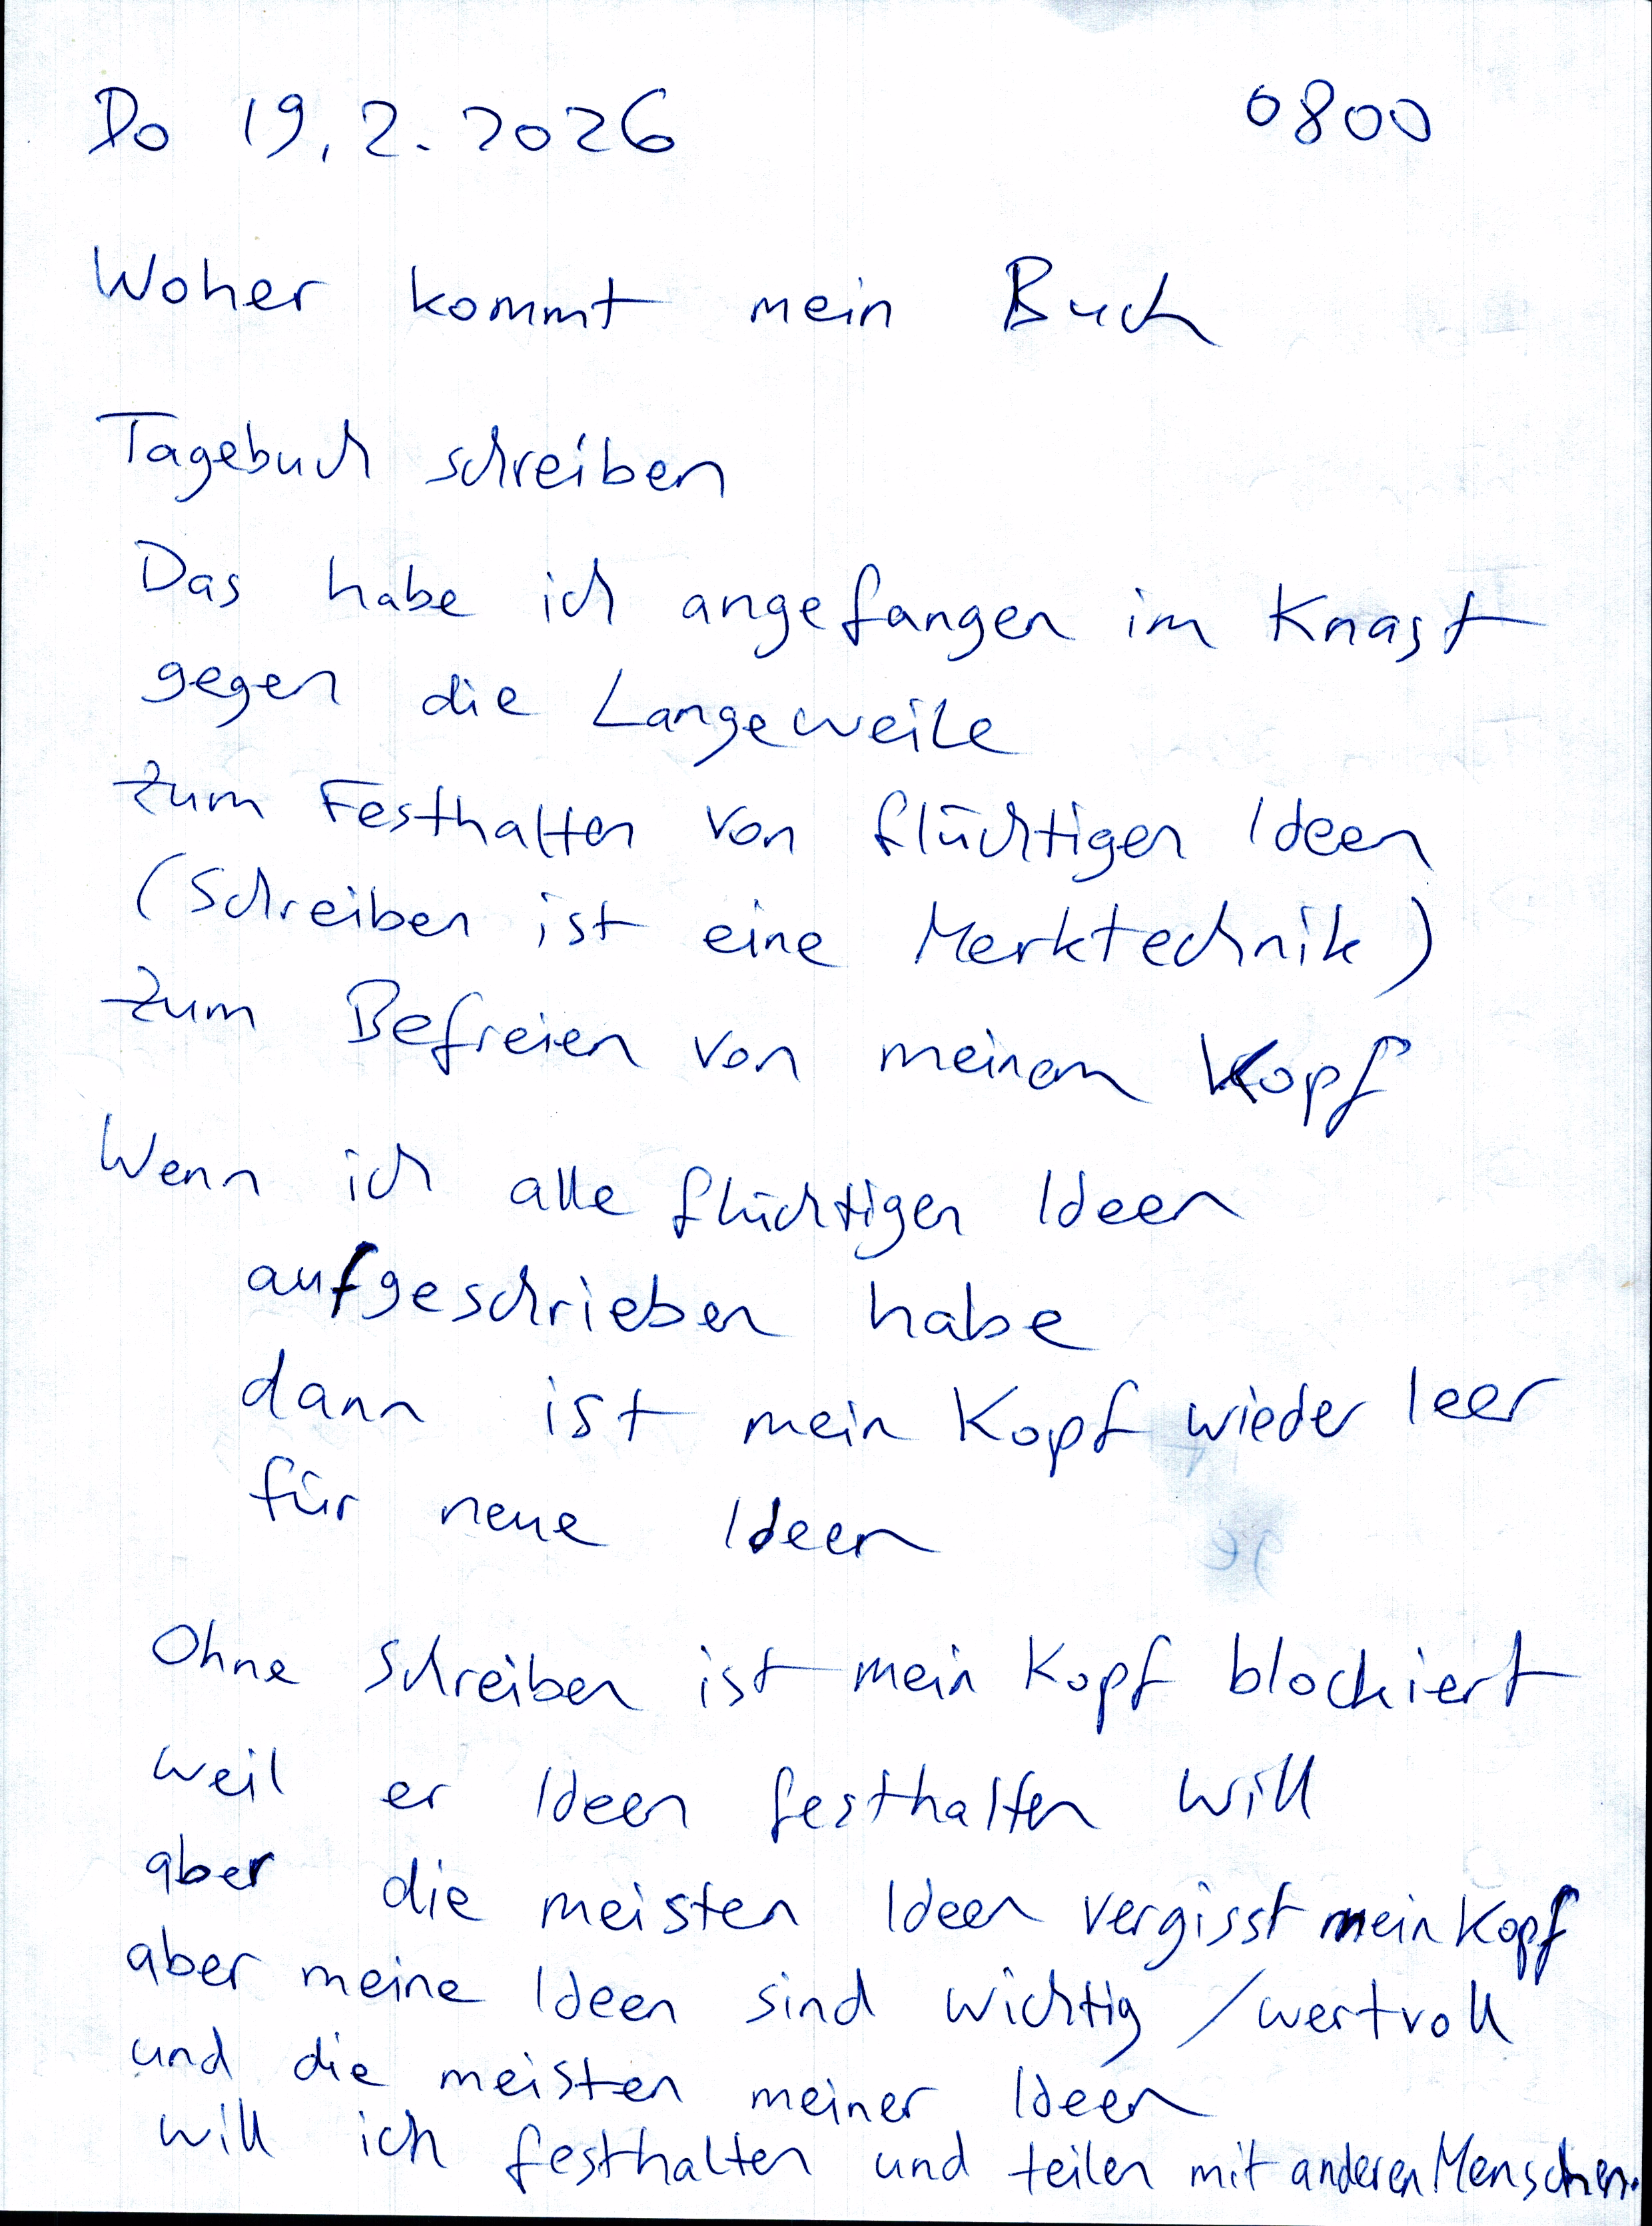 Do 19.2.2026 0800
Woher kommt mein Buch
Tagebuch schreiben
Das habe ich angefangen im Knast
gegen die Langeweile
zum Festhalten von flüchtigen Ideen
(Schreiben ist eine Merktechnik)
zum Befreien von meinem Kopf
Wenn ich alle flüchtigen Ideen
aufgeschrieben habe
dann ist mein Kopf wieder leer
für neue Ideen
Ohne Schreiben ist mein Kopf blockiert
weil er Ideen festhalten will
aber die meisten Ideen vergisst mein Kopf
aber meine Ideen sind wichtig / wertvoll
und die meisten meiner Ideen
will ich festhalten und teilen mit anderen Menschen.